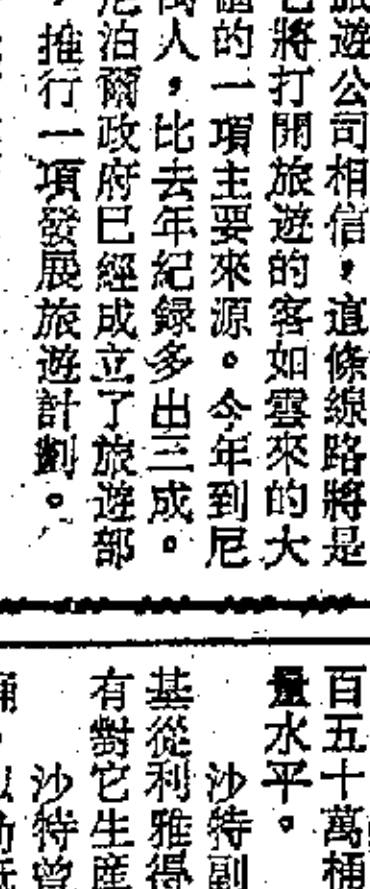 旅遊公司相信，這條線路將是
將打開旅遊的客如雲來的大
的一項主要來源。今年到尼
人，比去年紀録多出三成。
泊爾政府已經成立了旅遊部
，推行一項發展旅遊計劃。
百五十萬桶
量水平。
沙特副
基從利雅得
有對它生産
沙特曾